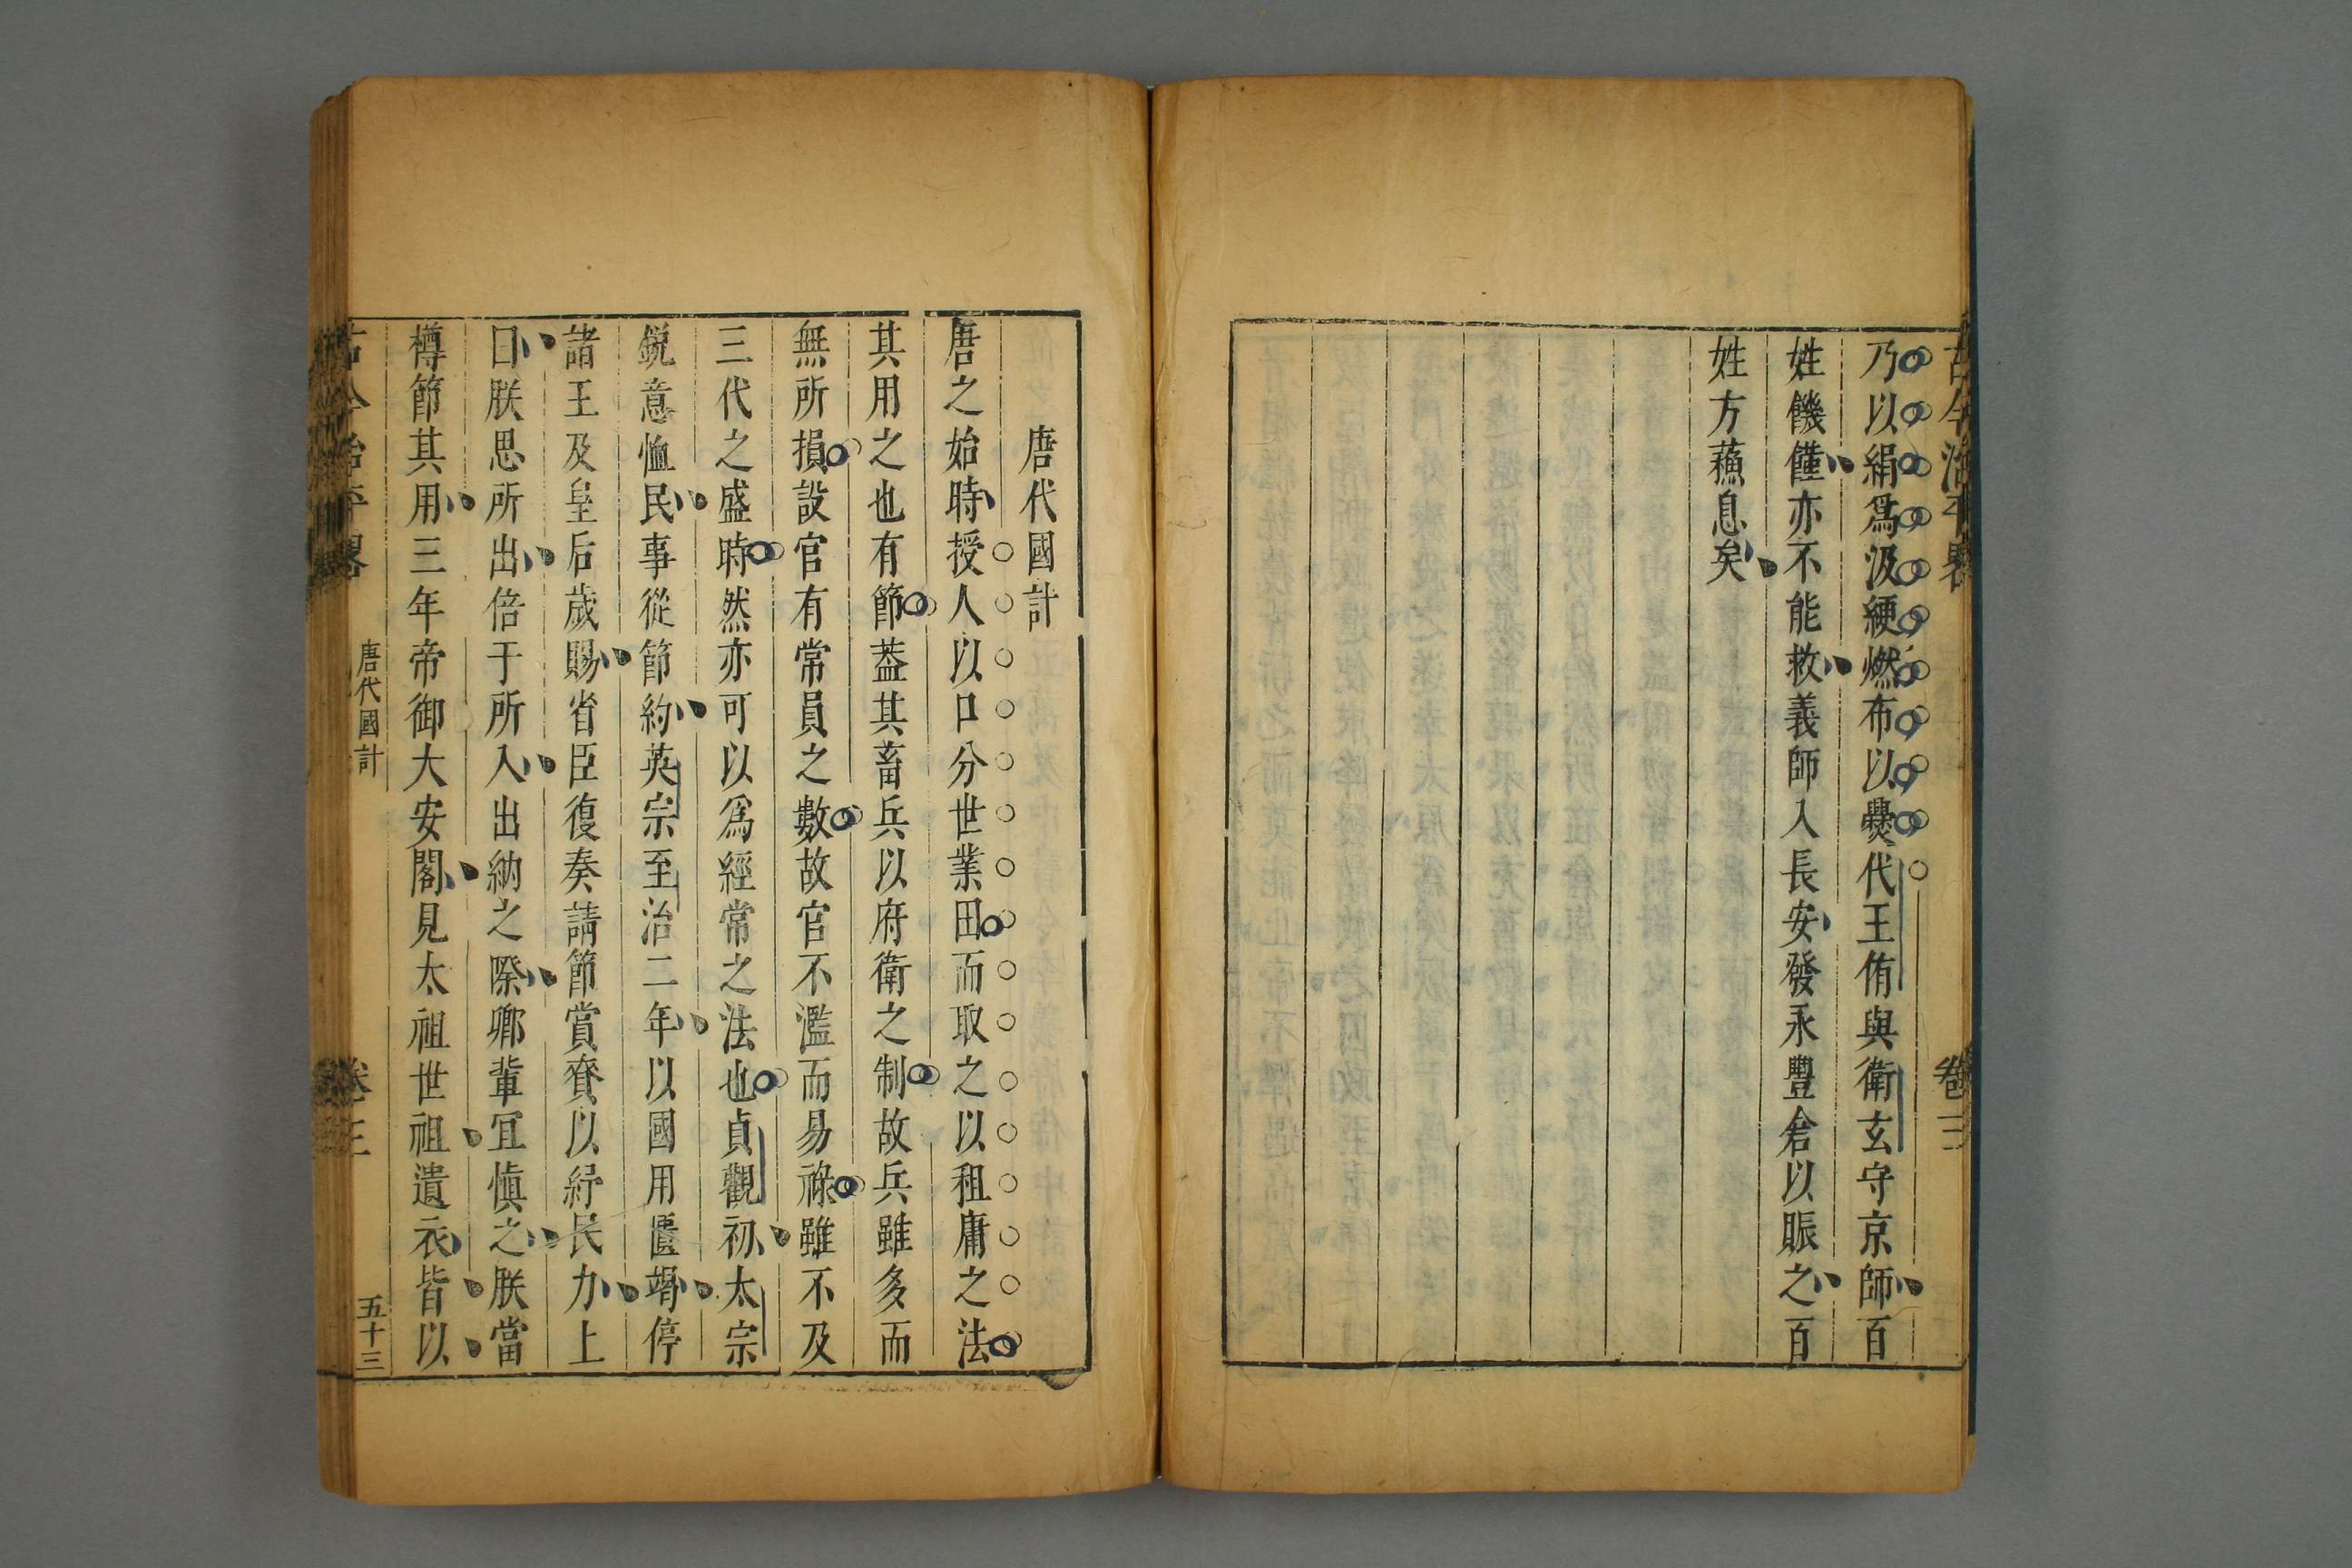 古今治平畧
卷三
乃以絹爲汲綆燃布以爨代王侑與衛玄守京師百
姓饑饉亦不能救義師入長安發永豐倉以賑之百
姓方蘓息矣
唐代國計
唐之始時授人以口分世業田而取之以租庸之法
其用之也有節葢其畜兵以府衛之制故兵雖多而
無所損設官有常員之數故官不濫而易祿雖不及
三代之盛時然亦可以爲經常之法也貞觀初太宗
銳意恤民事從節約英宗至治二年以國用匱竭停
諸王及皇后歲賜省臣復奏請節賞賚以紓民力上
曰朕思所出倍于所入出納之際卿輩冝愼之朕當
樽節其用三年帝御大安閣見太祖世祖遺衣皆以
古今治平畧
唐代國計
卷三
五十三